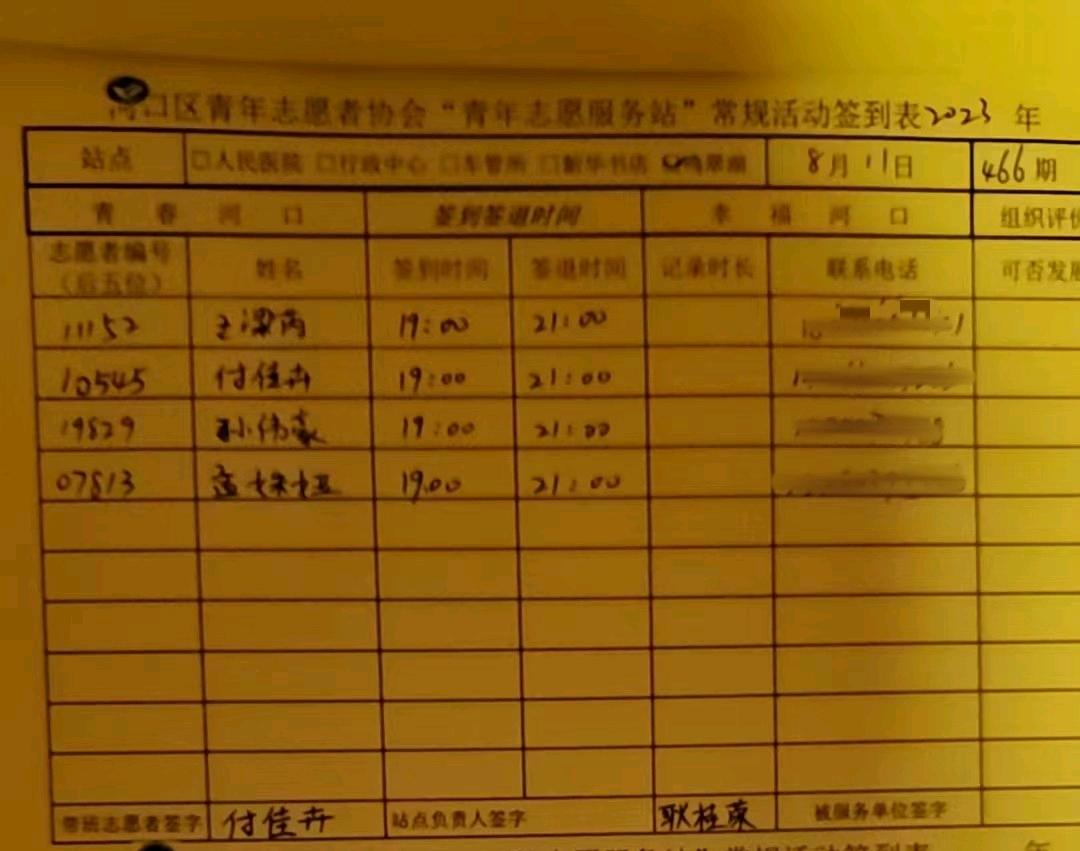 河口区青年志愿者协会“青年志愿服务站”常规活动签到表2023年
站点 □人民医院 □行政中心 □车管所 □新华书店 鸣翠湖 8月11日 466期
青春河口 签到签退时间 幸福河口 组织评价
志愿者编号（后五位） 姓名 签到时间 签退时间 记录时长 联系电话 可否发展
11152 王梁芮 19:00 21:00
10545 付佳卉 19:00 21:00
19829 孙伟豪 19:00 21:00
07813 19:00 21:00
带班志愿者签字 付佳卉 站点负责人签字 耿桂荣 被服务单位签字